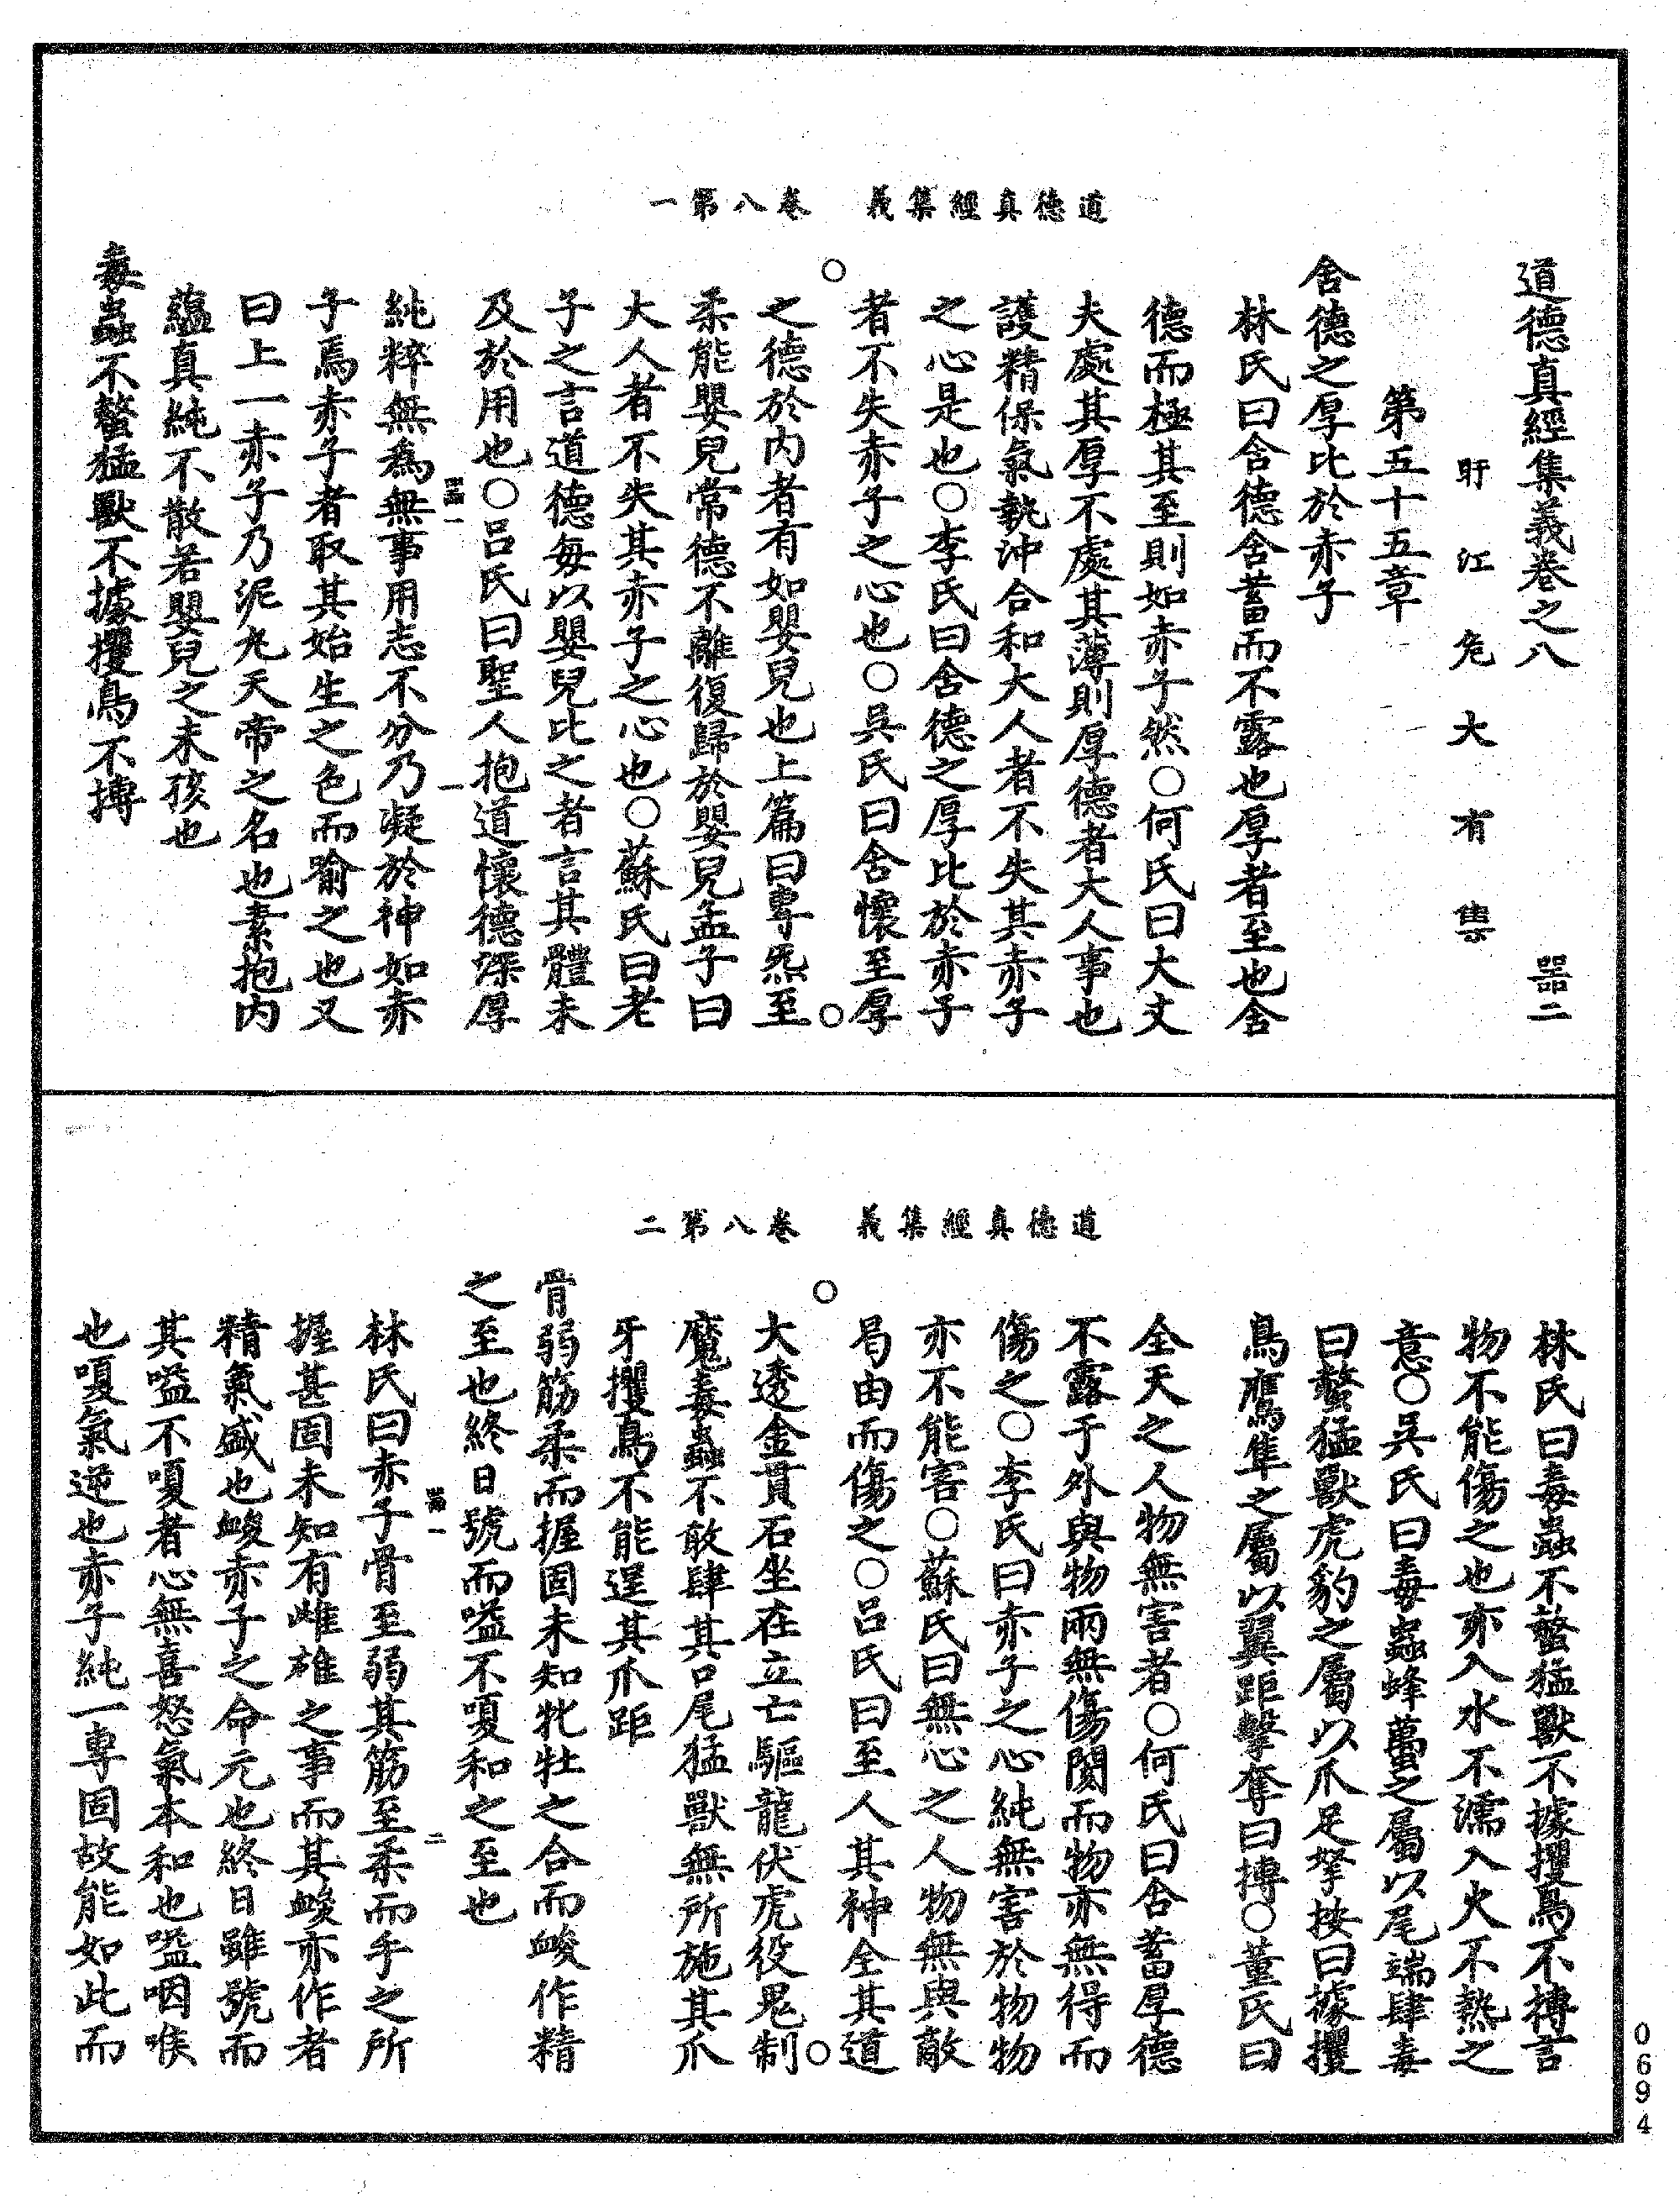 道德真經集義　卷八第一
道德真經集義卷之八　噐二
盱江危大有集
第五十五章
含德之厚比於赤子
林氏曰含德含蓄而不露也厚者至也含
德而極其至則如赤子然○何氏曰大丈
夫處其厚不處其薄則厚德者大人事也
護精保氣執沖合和大人者不失其赤子
之心是也○李氏曰含德之厚比於赤子
者不失赤子之心也○吳氏曰含懷至厚
之德於内者有如嬰兒也上篇曰專炁至
柔能嬰兒常德不離復歸於嬰兒孟子曰
大人者不失其赤子之心也○蘇氏曰老
子之言道德每以嬰兒比之者言其體未
及於用也○呂氏曰聖人抱道懷德深厚
純粹無為無事用志不分乃凝於神如赤
子焉赤子者取其始生之色而喻之也又
曰上一赤子乃泥丸天帝之名也素抱内
蘊真純不散若嬰兒之未孩也
毒蟲不螫猛獸不據攫鳥不搏
道德真經集義　卷八第二
林氏曰毒蟲不螫猛獸不據攫鳥不搏言
物不能傷之也亦入水不濡入火不熱之
意○吳氏曰毒蟲蜂蠆之屬以尾端肆毒
曰螫猛獸虎豹之屬以爪足拏按曰據攫
鳥鷹隼之屬以翼距擊奪曰搏○董氏曰
全天之人物無害者○何氏曰含蓄厚德
不露于外與物兩無傷閡而物亦無得而
傷之○李氏曰赤子之心純無害於物物
亦不能害○蘇氏曰無心之人物無與敵
曷由而傷之○呂氏曰至人其神全其道
大透金貫石坐在立亡驅龍伏虎役鬼制
魔毒蟲不敢肆其口尾猛獸無所施其爪
牙攫鳥不能逞其爪距
骨弱筋柔而握固未知牝牡之合而峻作精
之至也終日號而嗌不嗄和之至也
林氏曰赤子骨至弱其筋至柔而手之所
握甚固未知有雌雄之事而其峻亦作者
精氣盛也峻赤子之命元也終日雖號而
其嗌不嗄者心無喜怒氣本和也嗌咽喉
也嗄氣逆也赤子純一專固故能如此而
0694